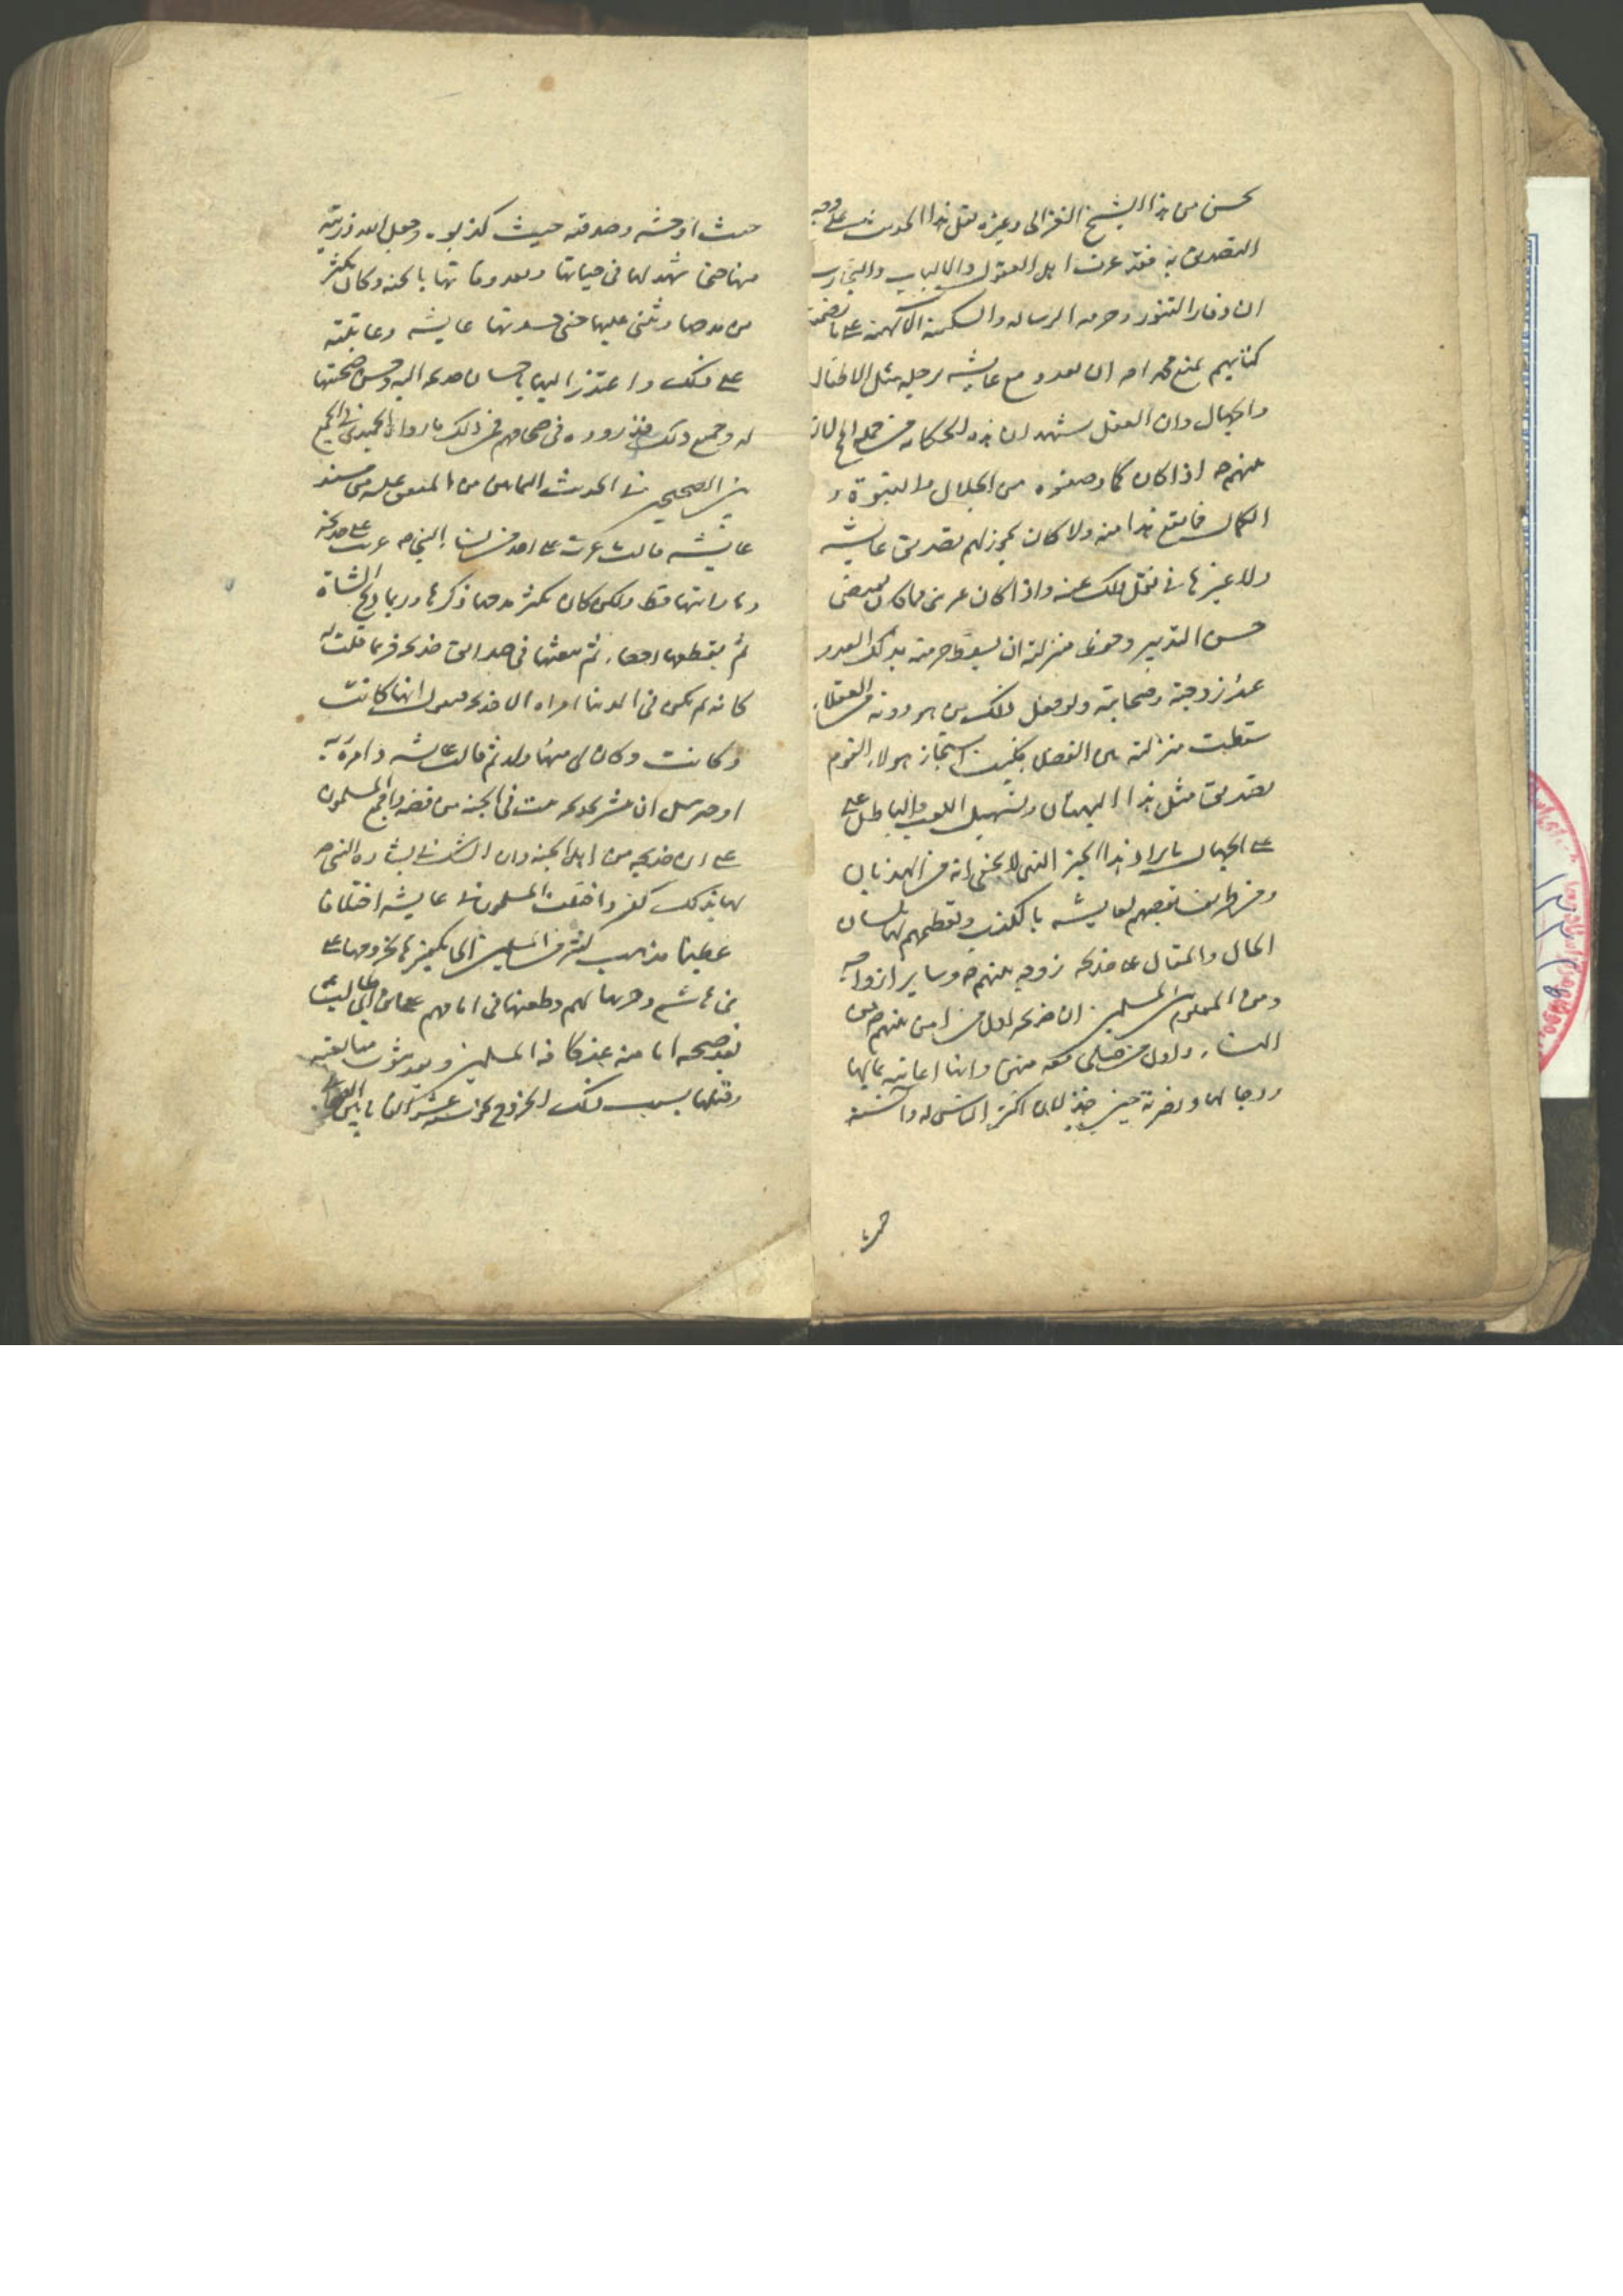 يحسن من هذا الشيخ الغزالي وغيره نقل هذا الحديث على وجه
التصديق به فقد عرف اهل العقول والالباب والتجارب
ان وقار النبوة وحرمه الرساله والسكينة الالهية على ما تضمنه
كتابهم يمنع محمدا ص ان يعدو مع عايشه برجليه مثل الاطفال
والجهال وان العقل يشهد ان هذه الحكايه من جمله المحالات
عنهم ص اذا كان كما وصفوه من الجلال والنبوة و
الكمال فامتنع هذا منه ولا كان يجوز لهم تصديق عايشه
ولا غيرها في نقل ذلك عنه واذا كان عرض فما كان يقتضي
حسن التدبير وحفظ منزلته ان يسقط حرمته بذلك العدو
عند زوجته وصحابته ولو فعل ذلك من هو دونه من العقلاء
سقطت منزلته من الفضل فكيف استجاز هولاء القوم
تصديق مثل هذا البهتان وتسهيل اللعب والباطل على
على الجهال بايراد هذا الخبر الذي لا يخفى انه من الهذيان
ومن طرايف تعصبهم لعايشه بالكذب وتعظيمهم لها بلسان
الحال والمقال على خديجه زوجه نبيهم ص وساير ازواجه
ومن المعلوم بين المسلمين ان خديجه اول من امن بنبيهم ص من
النساء واول من صلى معه منهن وانها اعانته بمالها
وجاهها ونصرته حين خذلان اكثر الناس له وآنسته
حيث
حيث اوحشه وصدقته حيث كذبوه وجعل الله ذريته
منها حتى شهد لها في حياتها وبعد وفاتها بالجنه وكان يكثر
من مدحها ويثني عليها حتى حسدتها عايشه وعاتبته
على ذلك واعتذر اليها باحسان خديجه اليه وحسن صحبتها
له وجميع ذلك قد رووه في صحاحهم فمن ذلك ما رواه الحميدي في الجمع
بين الصحيحين في الحديث الثمانين من المتفق عليه من مسند
عايشه قالت ما غرت على احد من نساء النبي ص ما غرت على خديجه
وما رايتها قط ولكن كان يكثر من ذكرها وربما ذبح الشاة
ثم يقطعها اعضاء ثم يبعثها في صدايق خديجه فربما قلت له
كانه لم يكن في الدنيا امراه الا خديجه فيقول انها كانت
وكانت وكان لي منها ولد ثم قالت عايشه وامره ربه
او جبرئيل ان يبشر خديجه ببيت في الجنه من قصب واجمع المسلمون
على ان خديجه من اهل الجنه وان الشك في بشاره النبي ص
لها بذلك كفر واختلف المسلمون في عايشه اختلافا
عظيما فذهب كثير من المسلمين الى تكفيرها بخروجها على
بني هاشم وحربها لهم وطعنها في امامهم علي بن ابي طالب
بعد صحه امامته عند كافه المسلمين وبعد ثبوت مبايعته
وقتلها بسبب ذلك الخروج نحو سته عشر الفا ما بين الصحابه